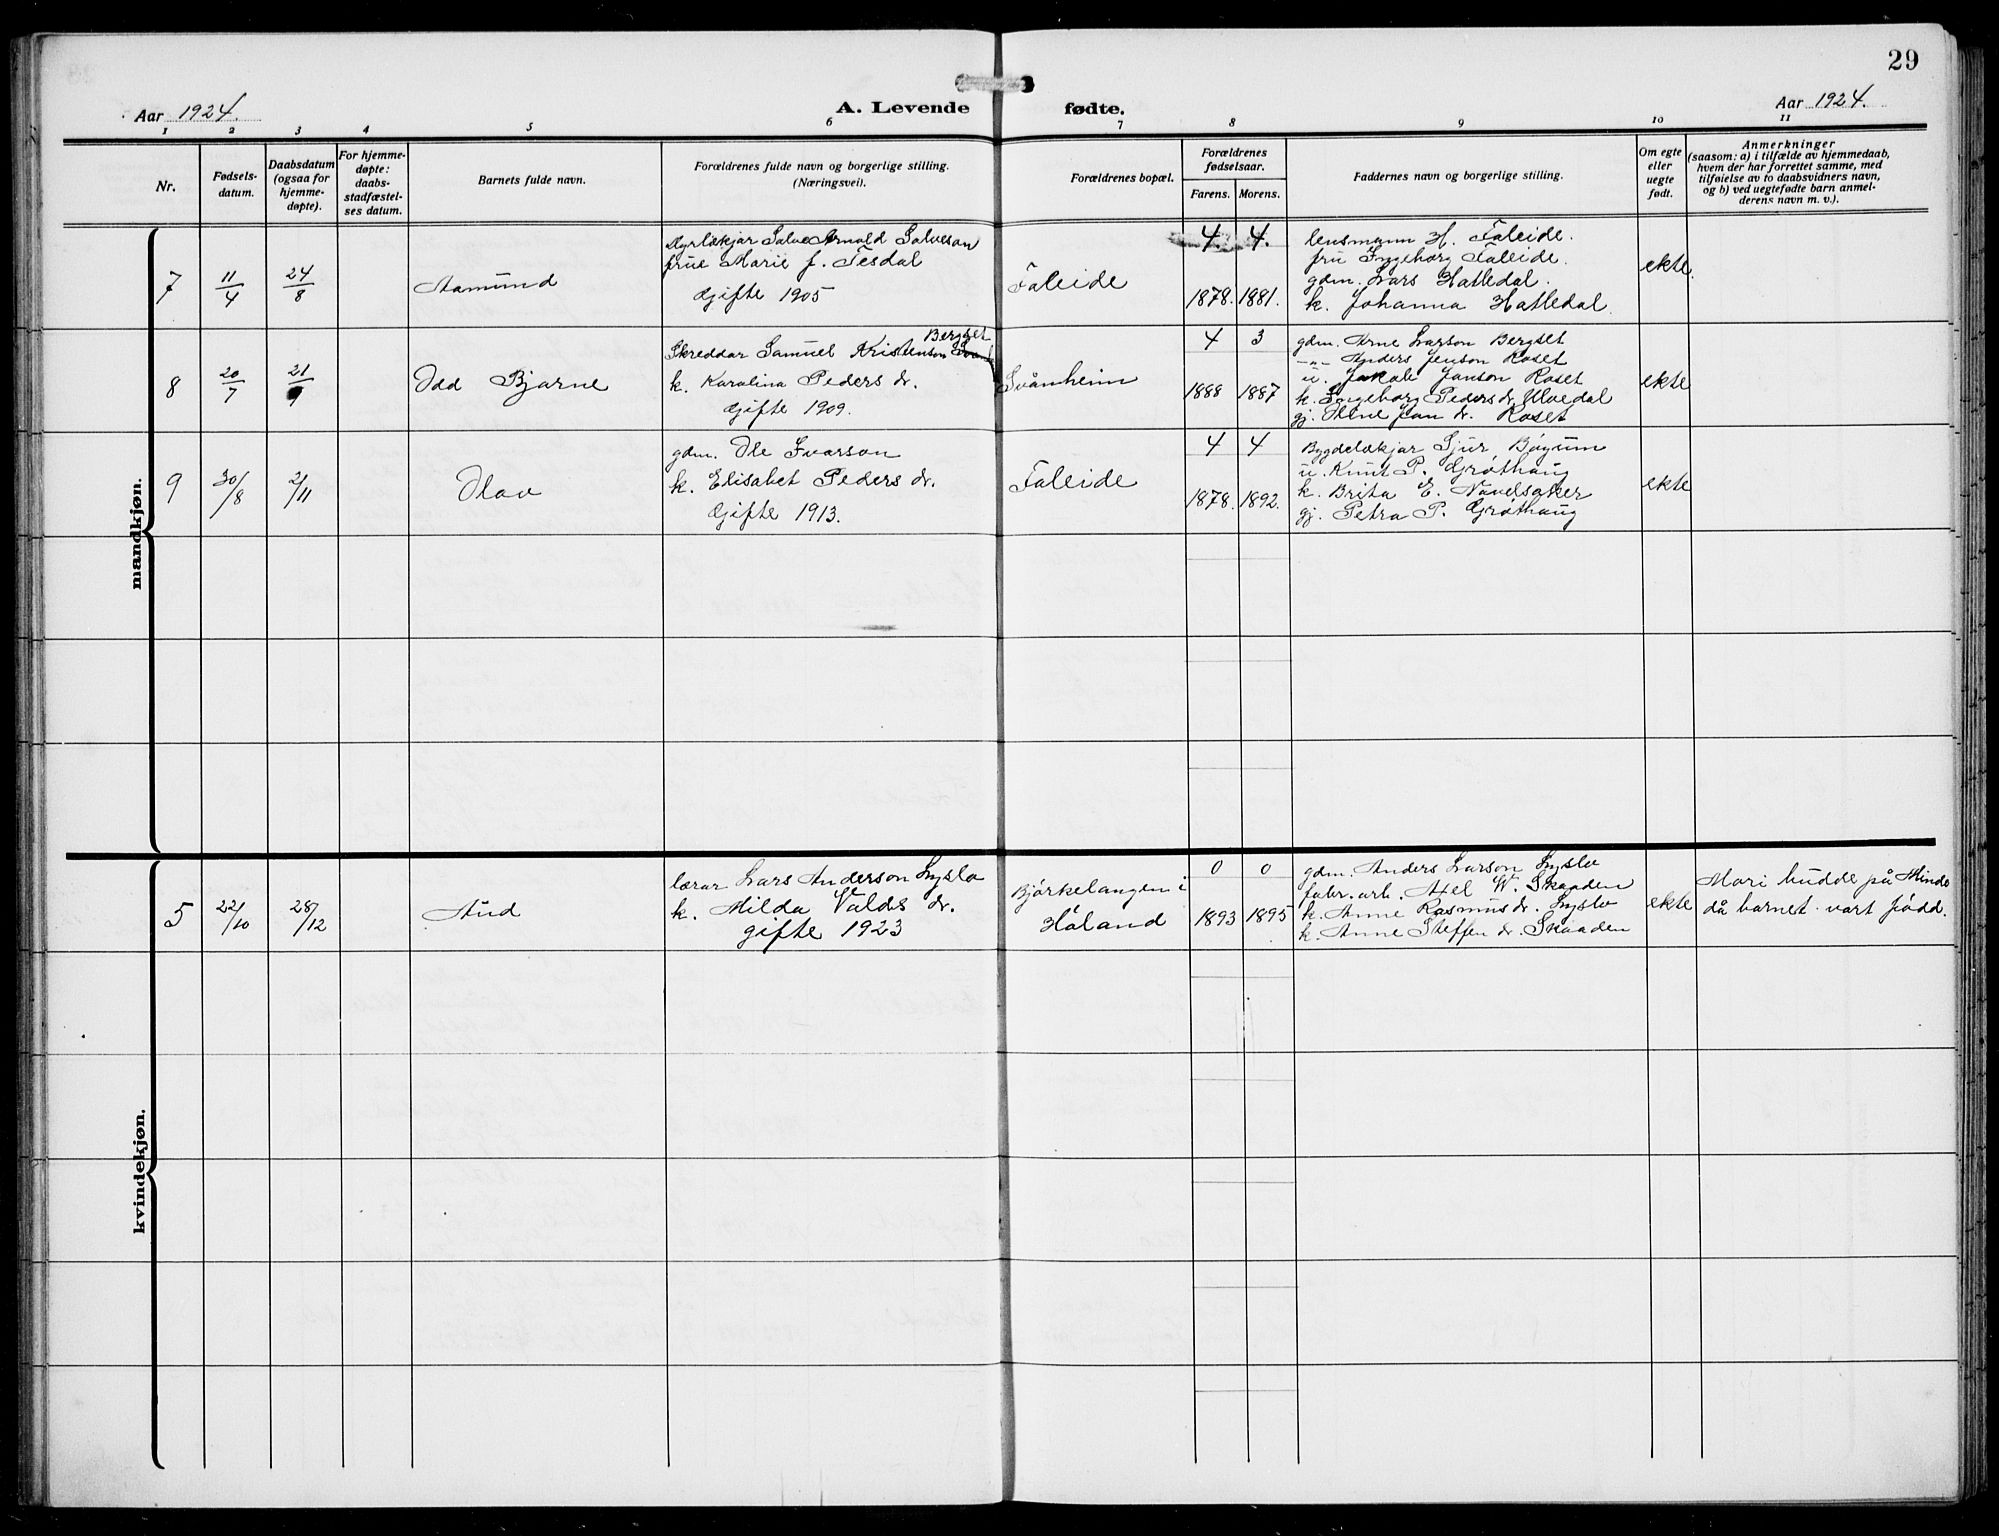 29
Aar 1924.
A. Levende fødte.
Aar 1924.
1 2 3 4 5 6 7 8 9 10 11
Nr.
Fødsels-
datum.
Daabsdatum
(ogsaa for
hjemme-
døpte).
For hjemme-
døpte:
daabs-
stadfæstel-
ses datum.
Barnets fulde navn.
Forældrenes fulde navn og borgerlige stilling.
(Næringsvei).
Forældrenes bopæl.
Forældrenes
fødselsaar.
Farens. Morens.
Faddernes navn og borgerlige stilling.
Om egte
eller
uegte
født.
Anmerkninger
(saasom: a) i tilfælde av hjemmedaab,
hvem der har forrettet samme, med
tilføielse av to daabsvidners navn,
og b) ved uegtefødte barn anmel-
derens navn m. v.).
mandkjøn.
7
11/4
24/8
Aamund
Dyrlækjar Salve Arnold Salveson
frue Marie f. Tesdal
Gifte 1905
Faleide
4. 4.
1878. 1881.
lensmann H. Faleide.
fru Ingeborg Faleide.
gdm. Lars Hatledal.
k. Johanna Hatledal.
ekte.
8
20/7
21/9
Odd Bjarne
Bergset
Skreddar Samuel Kristenson
k. Karolina Peders dr.
Gifte 1909.
Svånheim
4 3
1888 1887
gdm. Arne Larson Bergset
-"- Anders Jenson Roset
u. Jakob Janson Roset
k. Ingeborg Peders dr. Ulvedal
gj. Stine Jan dr. Roset
ekte
9
30/8
2/11
Olav
gdm. Ole Ivarson
k. Elisabet Peders dr.
Gifte 1913.
Faleide
4 4
1878. 1892.
Bygdelækjar Sjur Bøyum
u. Knut P. Grøthaug
k. Brita E. Navelsaker
gj. Petra P. Grøthaug
ekte
kvindekjøn.
5
22/10
28/12
Aud
lærar Lars Anderson Lyslo
k. Milda Valds dr.
gifte 1923
Bjørkelangen i
Høland
0 0
1893 1895
gdm. Anders Larson Lyslo
fabr. arb. Axel W. Skaaden
k. Anne Rasmus dr. Lyslo
k. Anne Steffen dr. Skaaden
ekte
Mori budde på Minde
då barnet vart fødd.